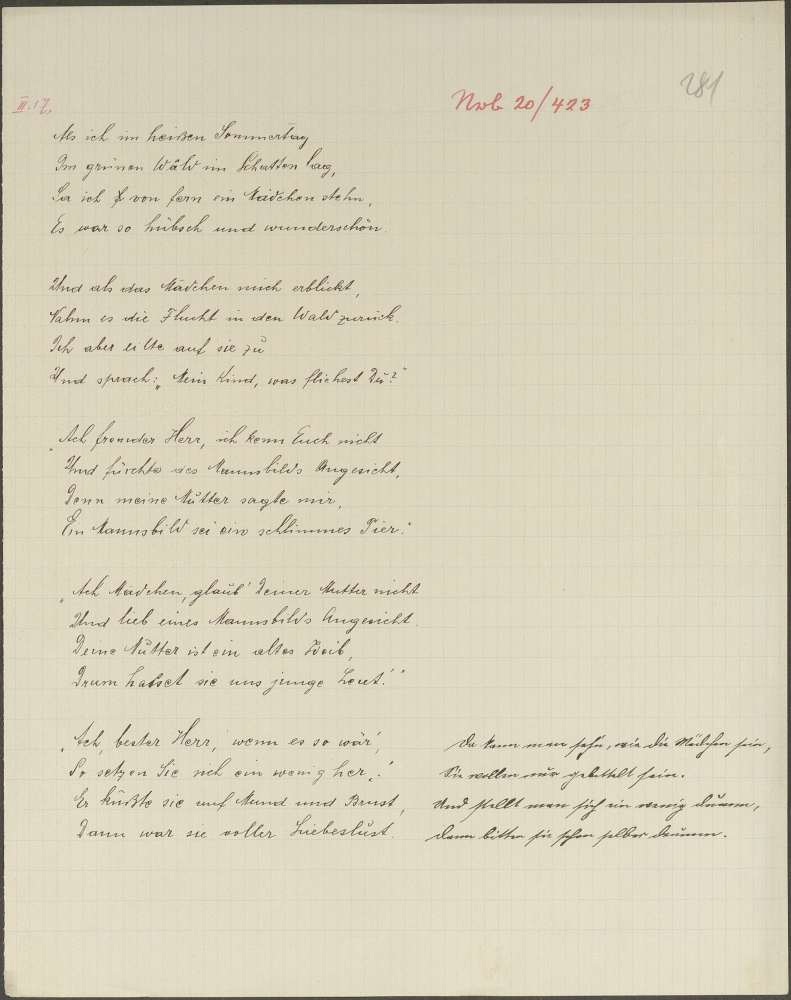 III.17.
Nrb 20/423
281
Als ich im heißen Sommertag
Im grünen Wald im Schatten lag,
Sa ich von fern ein Mädchen stehn,
Es war so hübsch und wunderschön.
Und als das Mädchen mich erblickt,
Nahm es die Flucht in den Wald zurück.
Ich aber eilte auf sie zu
Und sprach: „Mein Kind, was fliehest Du?"
„Ach fremder Herr, ich kenn Euch nicht
Und fürchte des Mannsbilds Angesicht,
Denn meine Mutter sagte mir,
Ein Mannsbild sei ein schlimmes Tier."
„Ach Mädchen, glaub' Deiner Mutter nicht
Und lieb eines Mannsbilds Angesicht.
Deine Mutter ist ein altes Weib,
Drum hasset sie uns junge Leut!"
„Ach, bester Herr, wenn es so wär',
So setzen Sie sich ein wenig her."
Er küßte sie auf Mund und Brust,
Dann war sie voller Liebeslust.
Da kann man sehn, wie die Mädchen sein,
Sie wollen nur gebettelt sein.
Und stellt man sich ein wenig dumm,
dann bitten sie schon selber drumm.